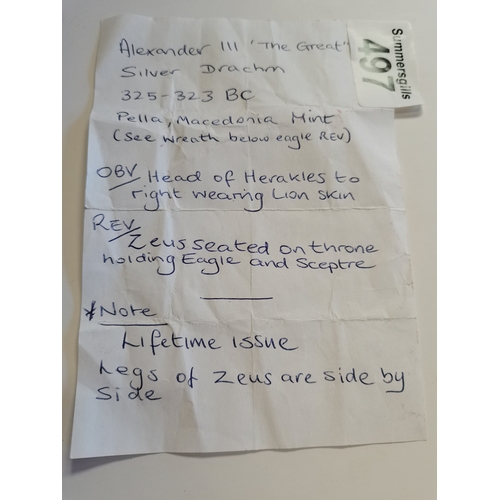 Alexander III 'The Great'
Silver Drachm
325-323 BC
Pella, Macedonia Mint
(See wreath below eagle REV)
OBV/ Head of Herakles to
right wearing Lion skin
REV/
Zeus seated on throne
holding Eagle and Sceptre
*Note
Lifetime issue
Legs of Zeus are side by
side
Summersgills
497